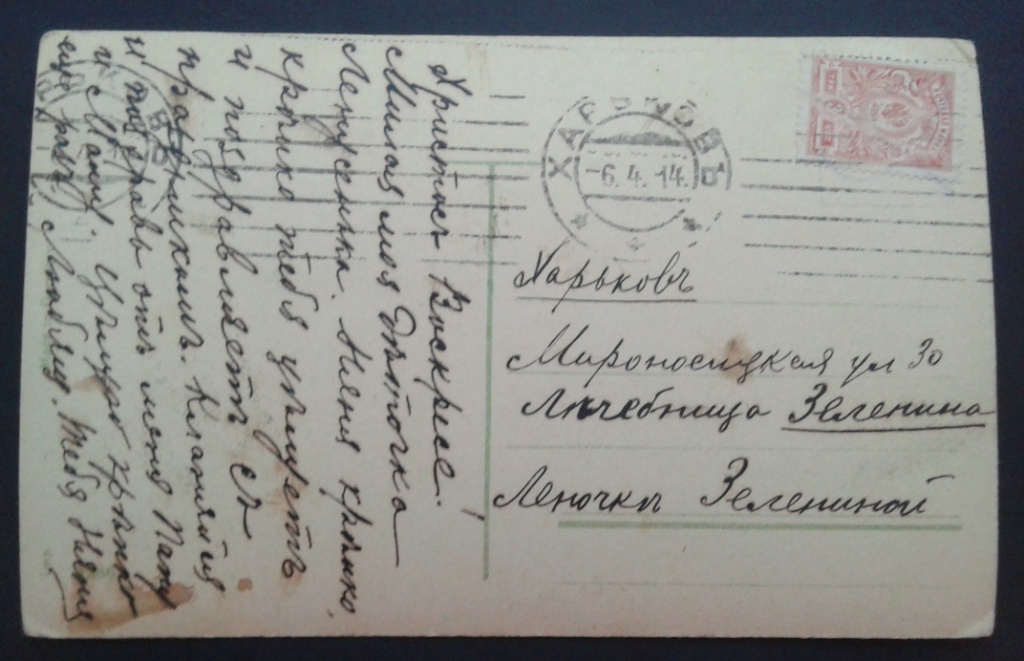 Христосъ Воскресе!
Милая моя Дѣточка
Ленусенька. Няня крѣпко,
крѣпко тебя цѣлуетъ
и поздравляетъ съ
праздникомъ. Кланяйся
и поздравь отъ меня Папу
и Маму. Цѣлую крѣпко
еще разъ. Любящ. тебя Няня
ХАРЬКОВЪ
-6.4.14
Харьковъ
Мироносицкая ул 30
Лѣчебница Зеленина
Леночкѣ Зелениной